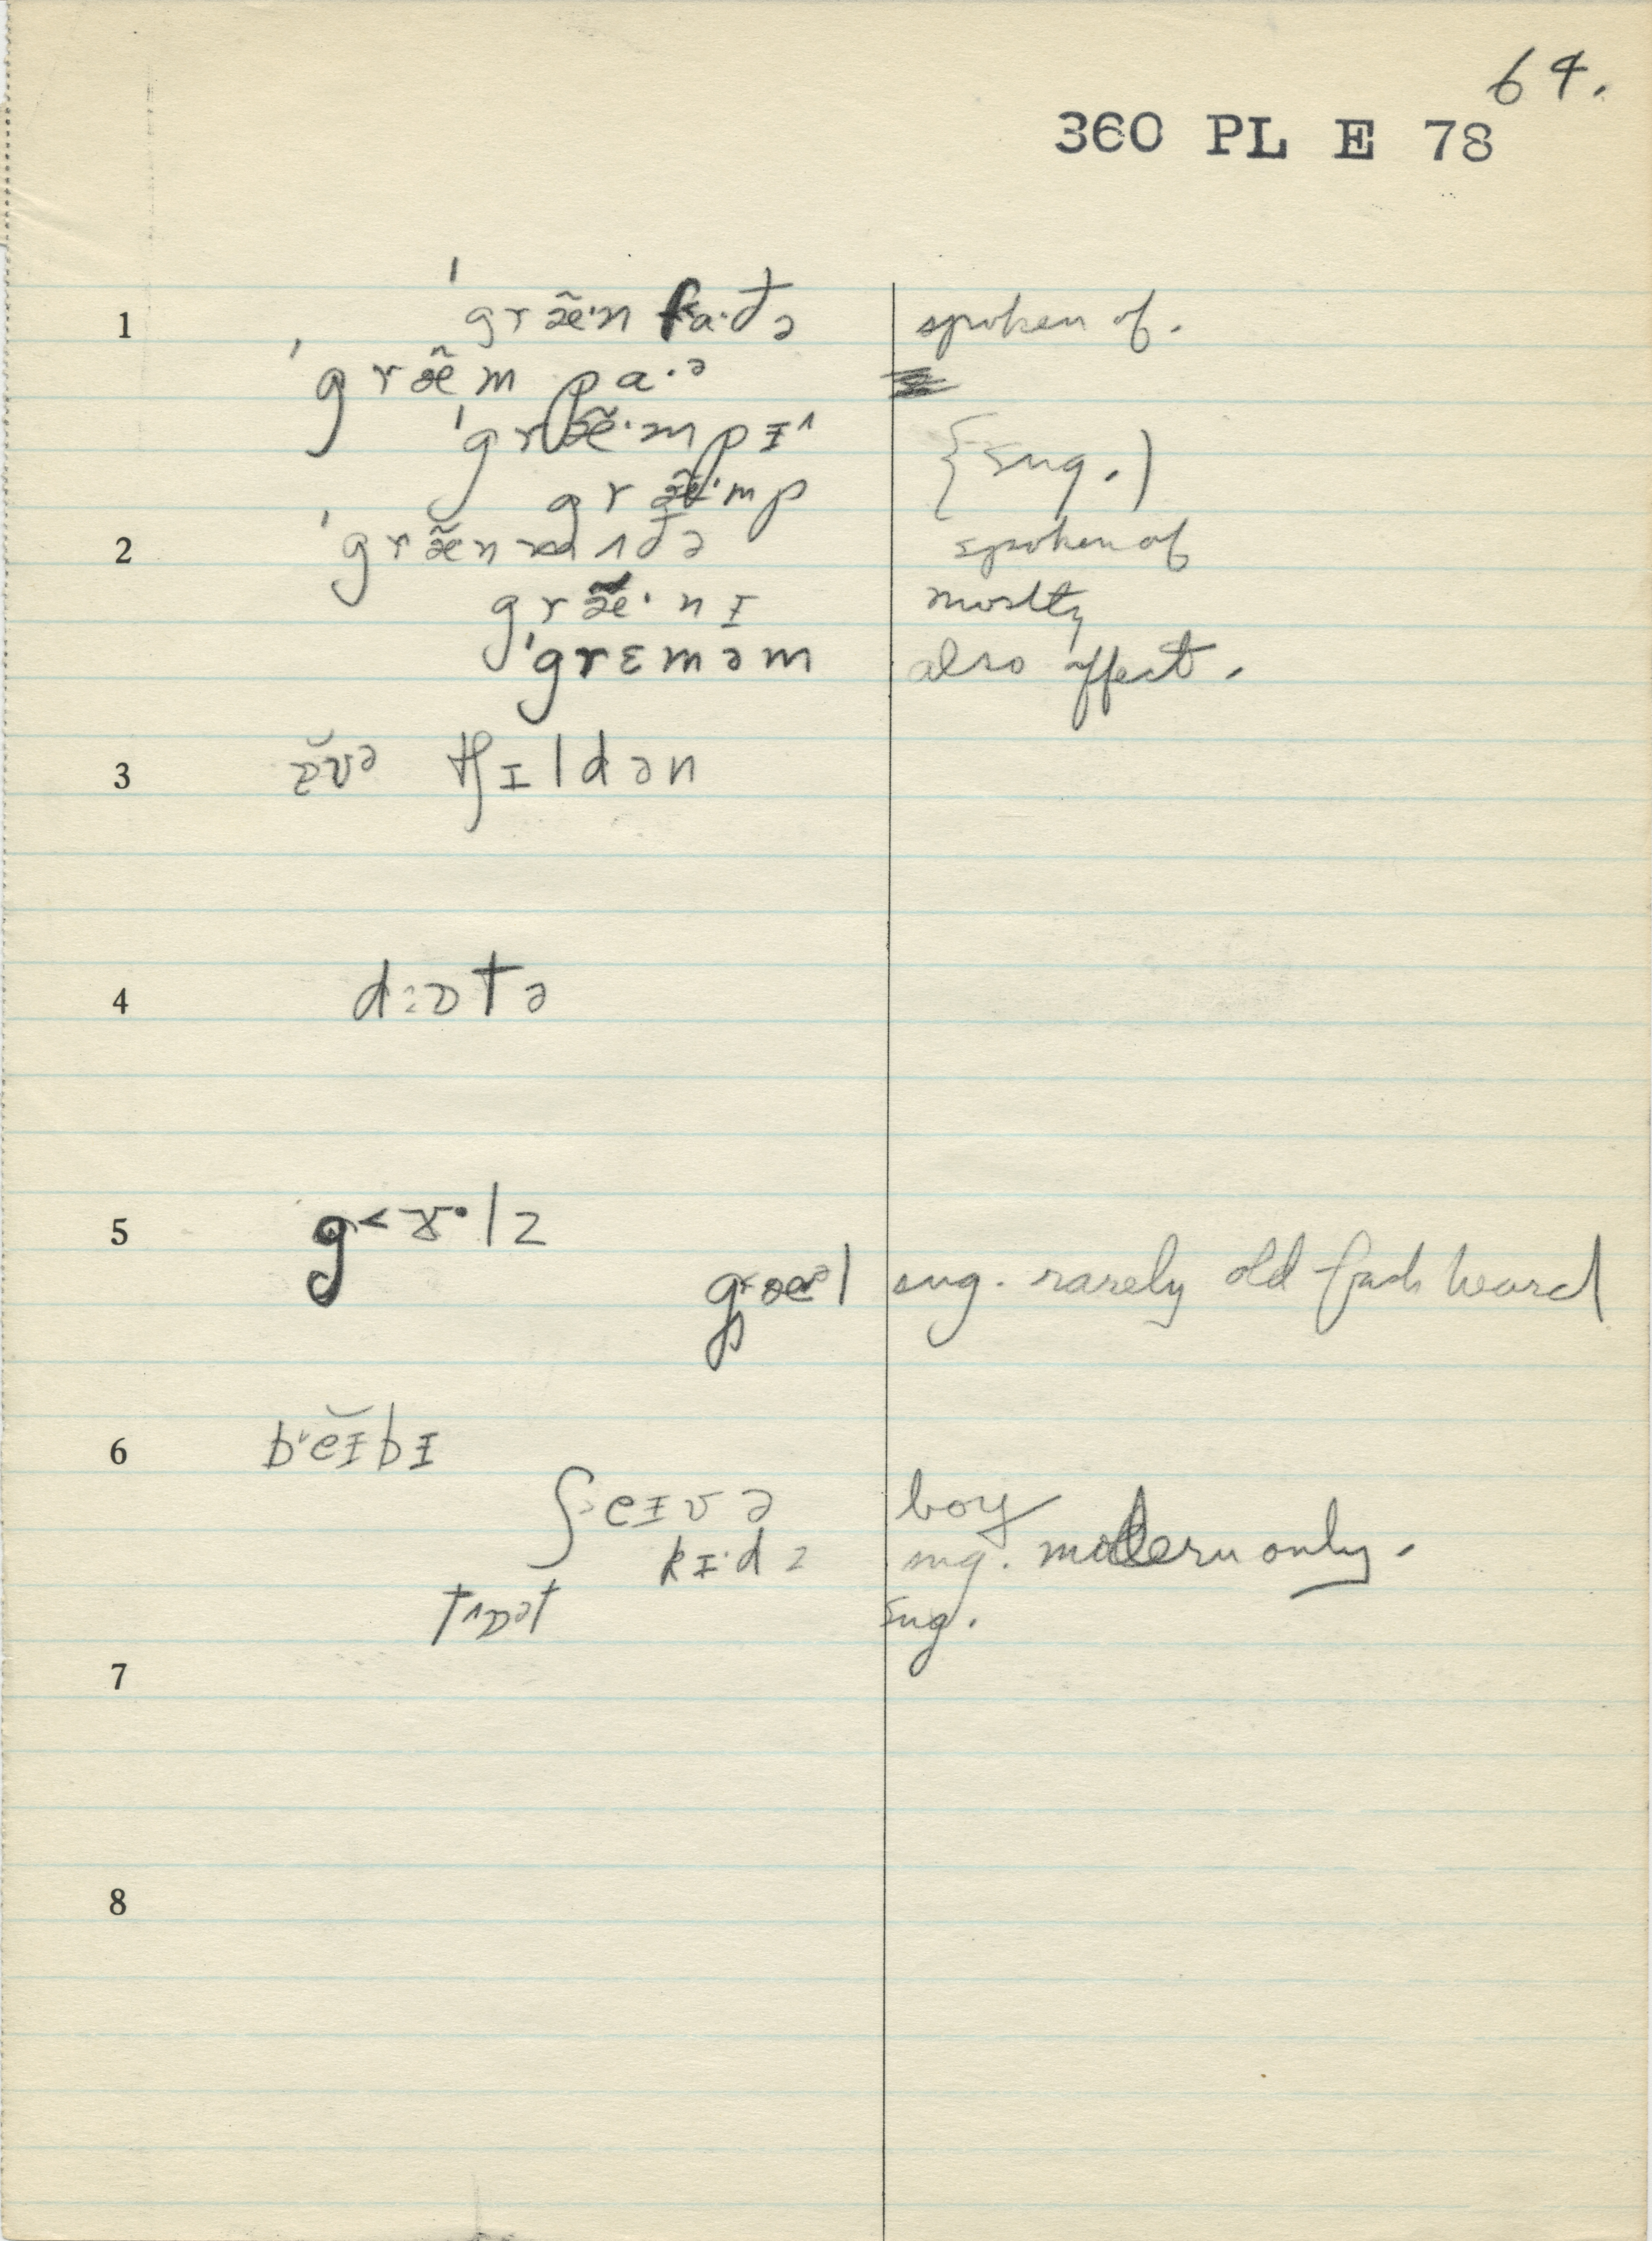 64.
360 PL E 78
1 ˈgræ̃·n fa·ðə spoken of.
ˈgræ̃m pa·ə
ˈgræ̃·mpɪ^ {sug.)
græ̃·mp
2 ˈgræ̃n mʌðə spoken of
græ̃·nɪ mostly
ˈgrɛməm also affect.
3 ɒ̆və tʃɪldən
4 dːɒtə
5 g˂ɤ·lz
g˂æᵊl sug. rarely old fash heard
6 bˈĕɪbɪ
ʃeɪvə boy
kɪ·dz sug. modern only.
sug.
7
8